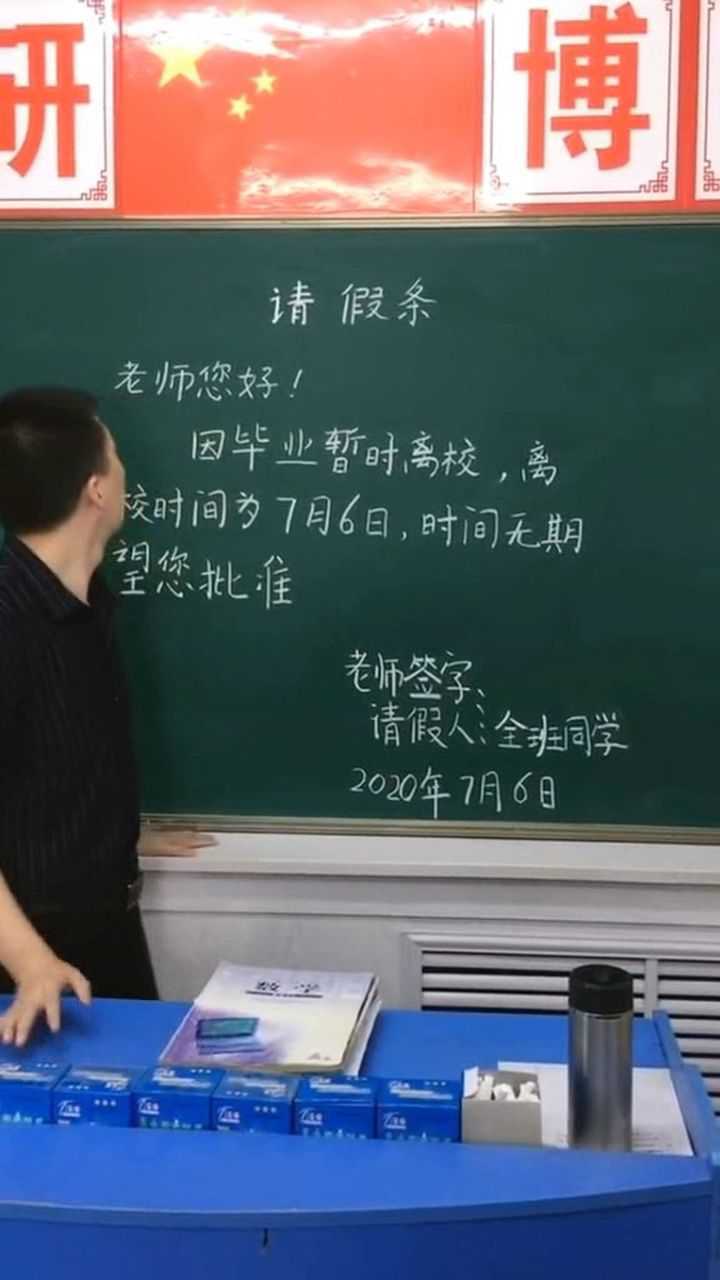 研 博
请假条
老师您好！
因毕业暂时离校，离
校时间为7月6日，时间无期
望您批准
老师签字、
请假人：全班同学
2020年7月6日
数学